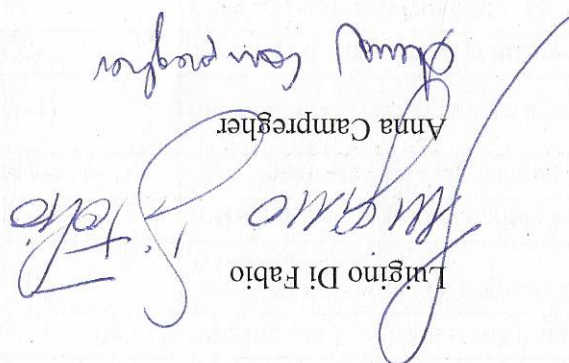 Luigino Di Fabio
Luigino Di Fabio
Anna Campregher
Anna Campregher